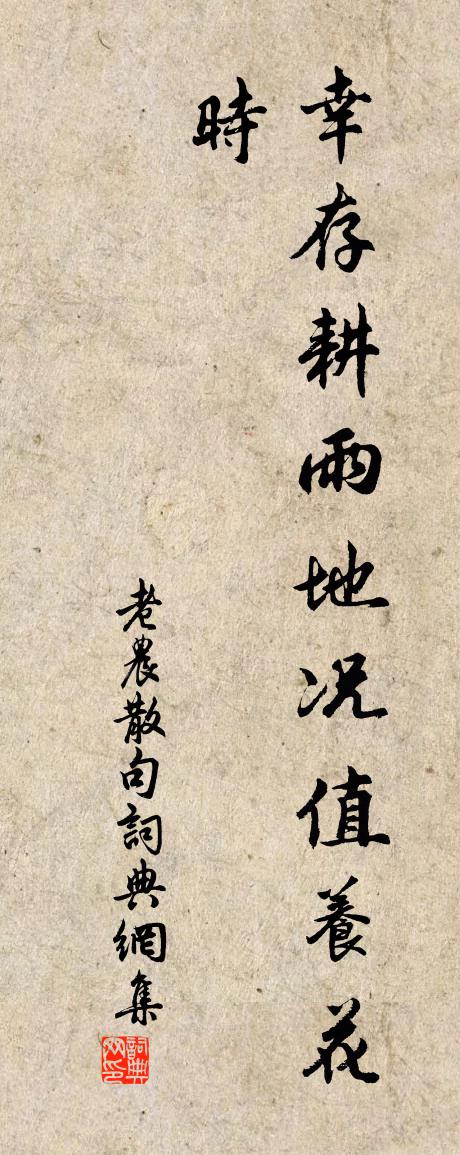 幸存耕雨地况值養花
時
老農散句詞典網集
詞典网印